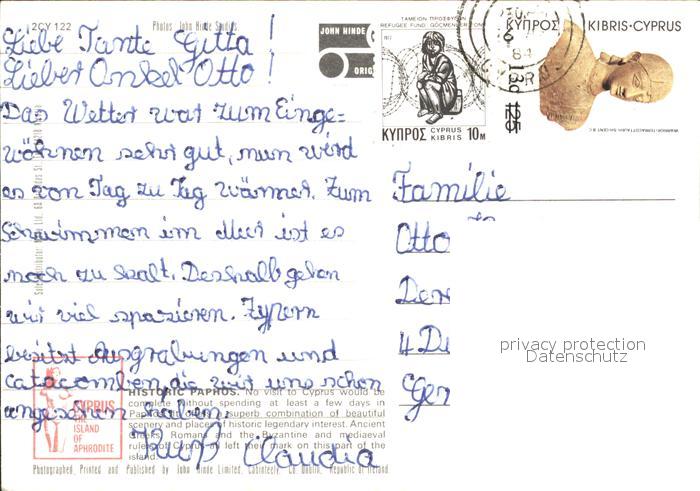 2CY 122
Photos: John Hinde Studios
Liebe Tante Gitta!
Lieber Onkel Otto!
Das Wetter war zum Einge=
wöhnen sehr gut, nun wird
es von Tag zu Tag wärmer. Zum
Schwimmen im Meer ist es
noch zu kalt. Deshalb gehen
wir viel spazieren. Zypern
besitzt Ausgrabungen und
Catacomben, die wir uns schon
angesehen haben.
Kuß Claudia
CYPRUS
THE
ISLAND
OF
APHRODITE
HISTORIC PAPHOS. No visit to Cyprus would be
complete without spending at least a few days in
superb combination of beautiful
scenery and places of historic legendary interest. Ancient
Romans and the Byzantine and mediaeval
rulers of Cyprus all left their mark on this part of the
island.
Photographed, Printed and Published by John Hinde Limited, Cabinteely, Co. Dublin, Republic of Ireland
JOHN HINDE
ORIG
ΤΑΜΕΙΟΝ ΠΡΟΣΦΥΓΩΝ
REFUGEE FUND GÖCMENLER FONU
1977
ΚΥΠΡΟΣ CYPRUS KIBRIS 10M
ΚΥΠΡΟΣ KIBRIS·CYPRUS
13c
125
84
Familie
Otto
Der
4 Dü
Ger
privacy protection
Datenschutz